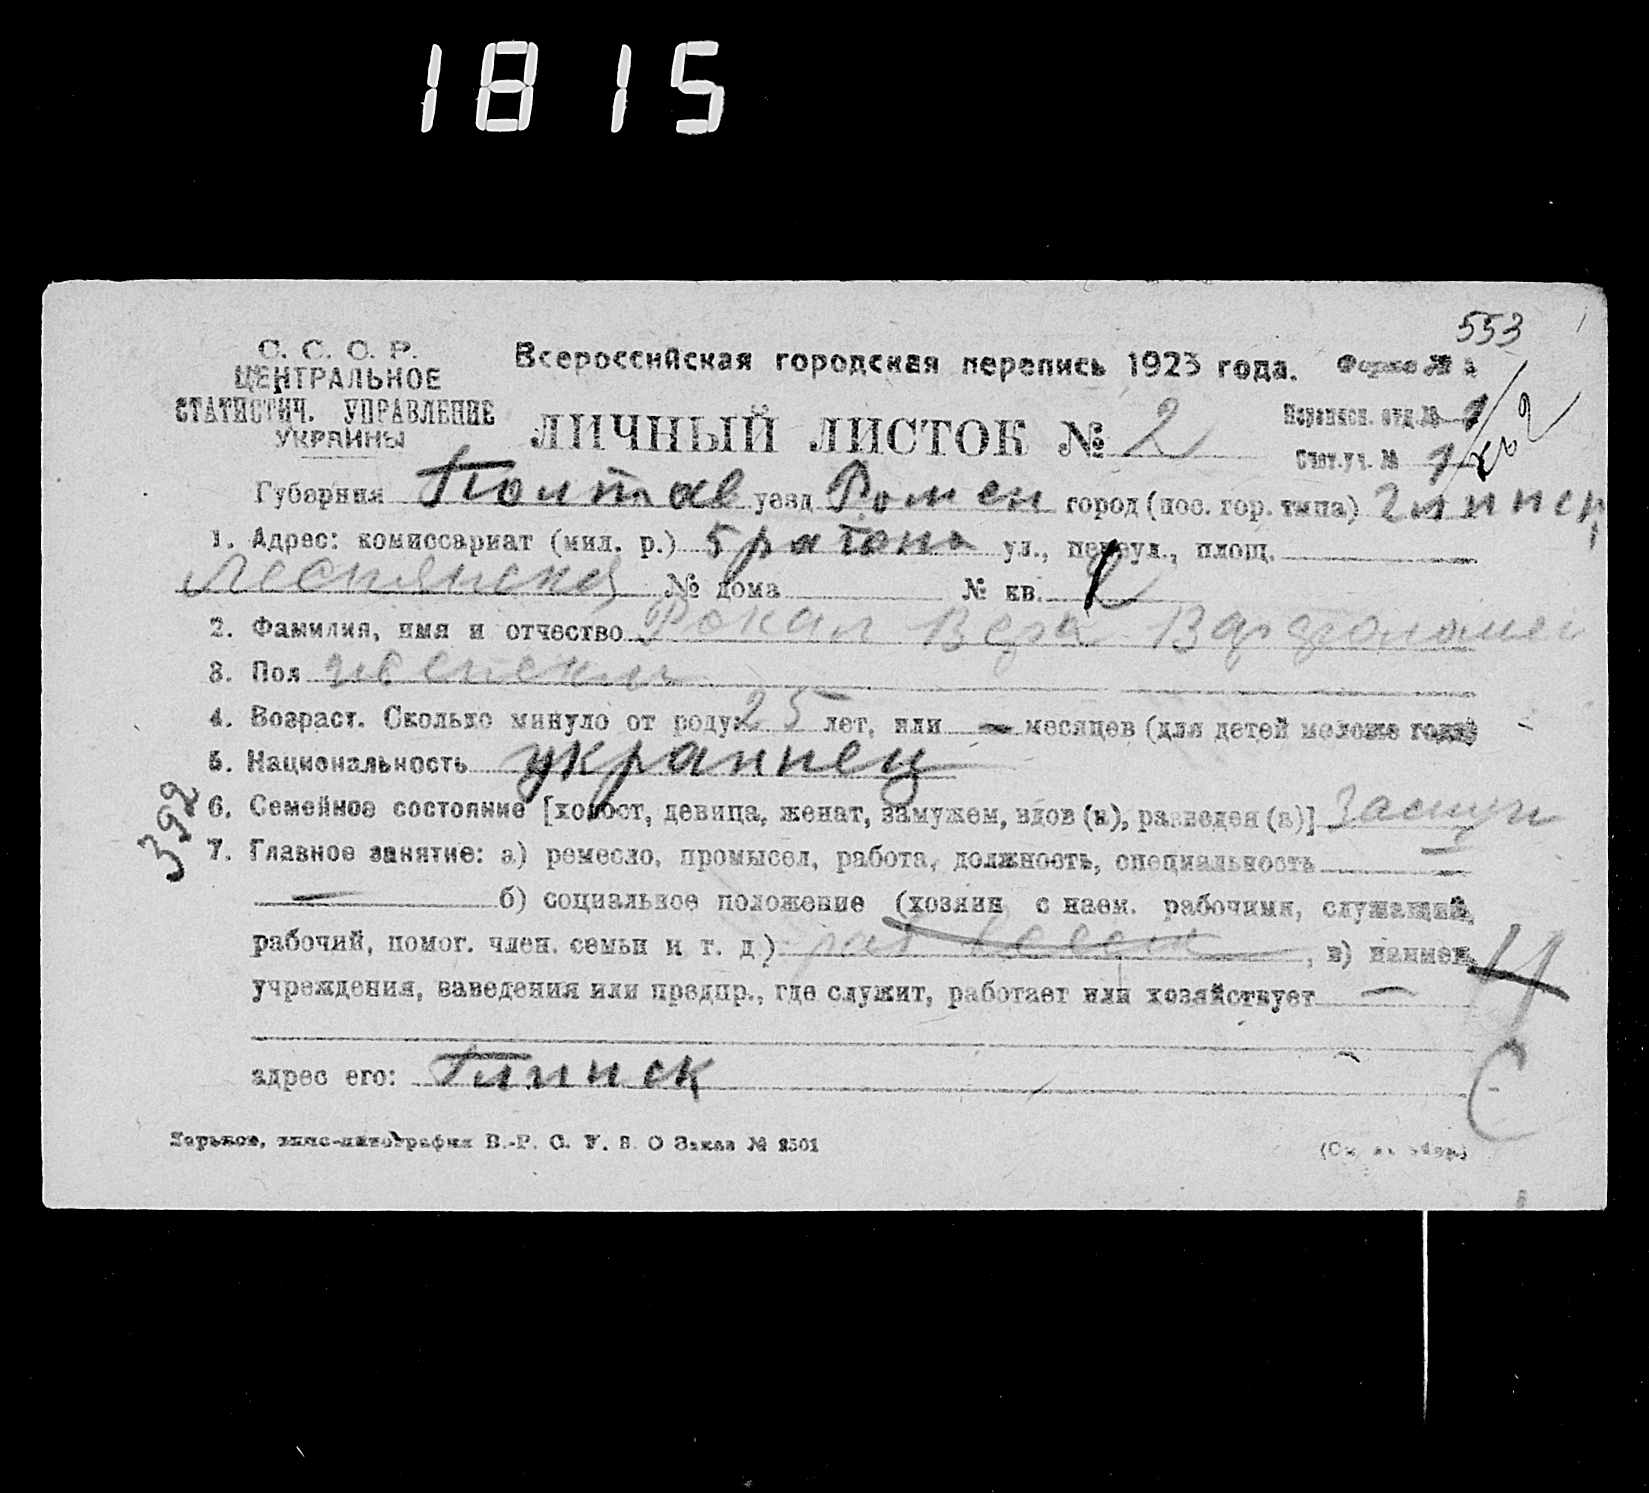 1815
553
С. С. С. Р.
ЦЕНТРАЛЬНОЕ
СТАТИСТИЧ. УПРАВЛЕНИЕ
УКРАИНЫ
Всероссийская городская перепись 1923 года. Форма №
ЛИЧНЫЙ ЛИСТОК № 2
Переписн. отд. № 1
Счет. уч. № 1
Губерния Полтав уезд Ромен город (пос. гор. типа) Глинск
1. Адрес: комиссариат (мил. р.) 5 района ул., переул., площ.
№ дома № кв.
2. Фамилия, имя и отчество Рокал Вера Варфоломеи
3. Пол женский
4. Возраст. Сколько минуло от роду 25 лет, или — месяцев (для детей моложе года)
5. Национальность украинец
392
6. Семейное состояние [холост, девица, женат, замужем, вдов (а), разведен (а)] Замуж
7. Главное занятие: а) ремесло, промысел, работа, должность, специальность —
— б) социальное положение (хозяин с наем. рабочими, служащий,
рабочий, помог. член. семьи и т. д.) , в) наимен.
учреждения, заведения или предпр., где служит, работает или хозяйствует —
адрес его: Глинск
С
Харьков, типо-литография В.-Р. С. У. В. О Заказ № 2501
(См. на обор.)